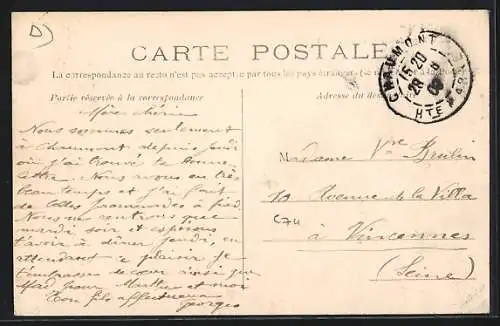 D)
CARTE POSTALE
La correspondance au recto n'est pas acceptée par tous les pays étrangers (se
Partie réservée à la correspondance
Adresse du
CHAUMONT
15 20
28
HTE
Mère chérie
Nous sommes seulement
à Chaumont depuis jeudi
où j'ai trouvé ta bonne
lettre. Nous avons eu très
beau temps et j'ai fait
de belles promenades à pied.
Nous ne rentrons que
mardi soir et espérons
t'avoir à dîner jeudi, en
attendant ce plaisir je
t'embrasse de cœur ainsi que
Mad pour Marthe et moi
Ton fils affectueux
Georges
Madame Vve
10 Avenue de la Villa
C74
à Vincennes
(Seine)